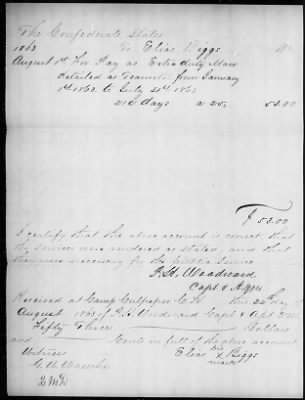 The Confederate States
1863 To Elias Biggs Dr
August 1st For Pay as Extra duty Man
detailed as Teamster from January
1st 1863 to July 31st 1863
212 days a 25. 53.00
$ 53.00
I certify that the above account is correct that
the services were rendered as stated, and that
they were necessary for the public service
P.H. Woodward
Capt &
Received at Camp Culpeper C.H. this day of
August 1863 of P.H. Woodward Capt &
Fifty Three Dollars
and Cents in full of the above account.
Witness Elias his x Biggs
mark